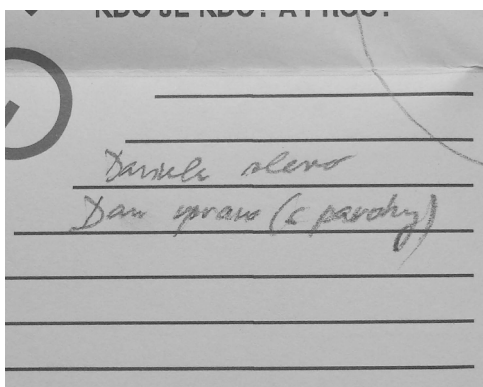 KDO JE KDO? A PROČ?
Daniela vlevo
Dan vpravo (s parohy)